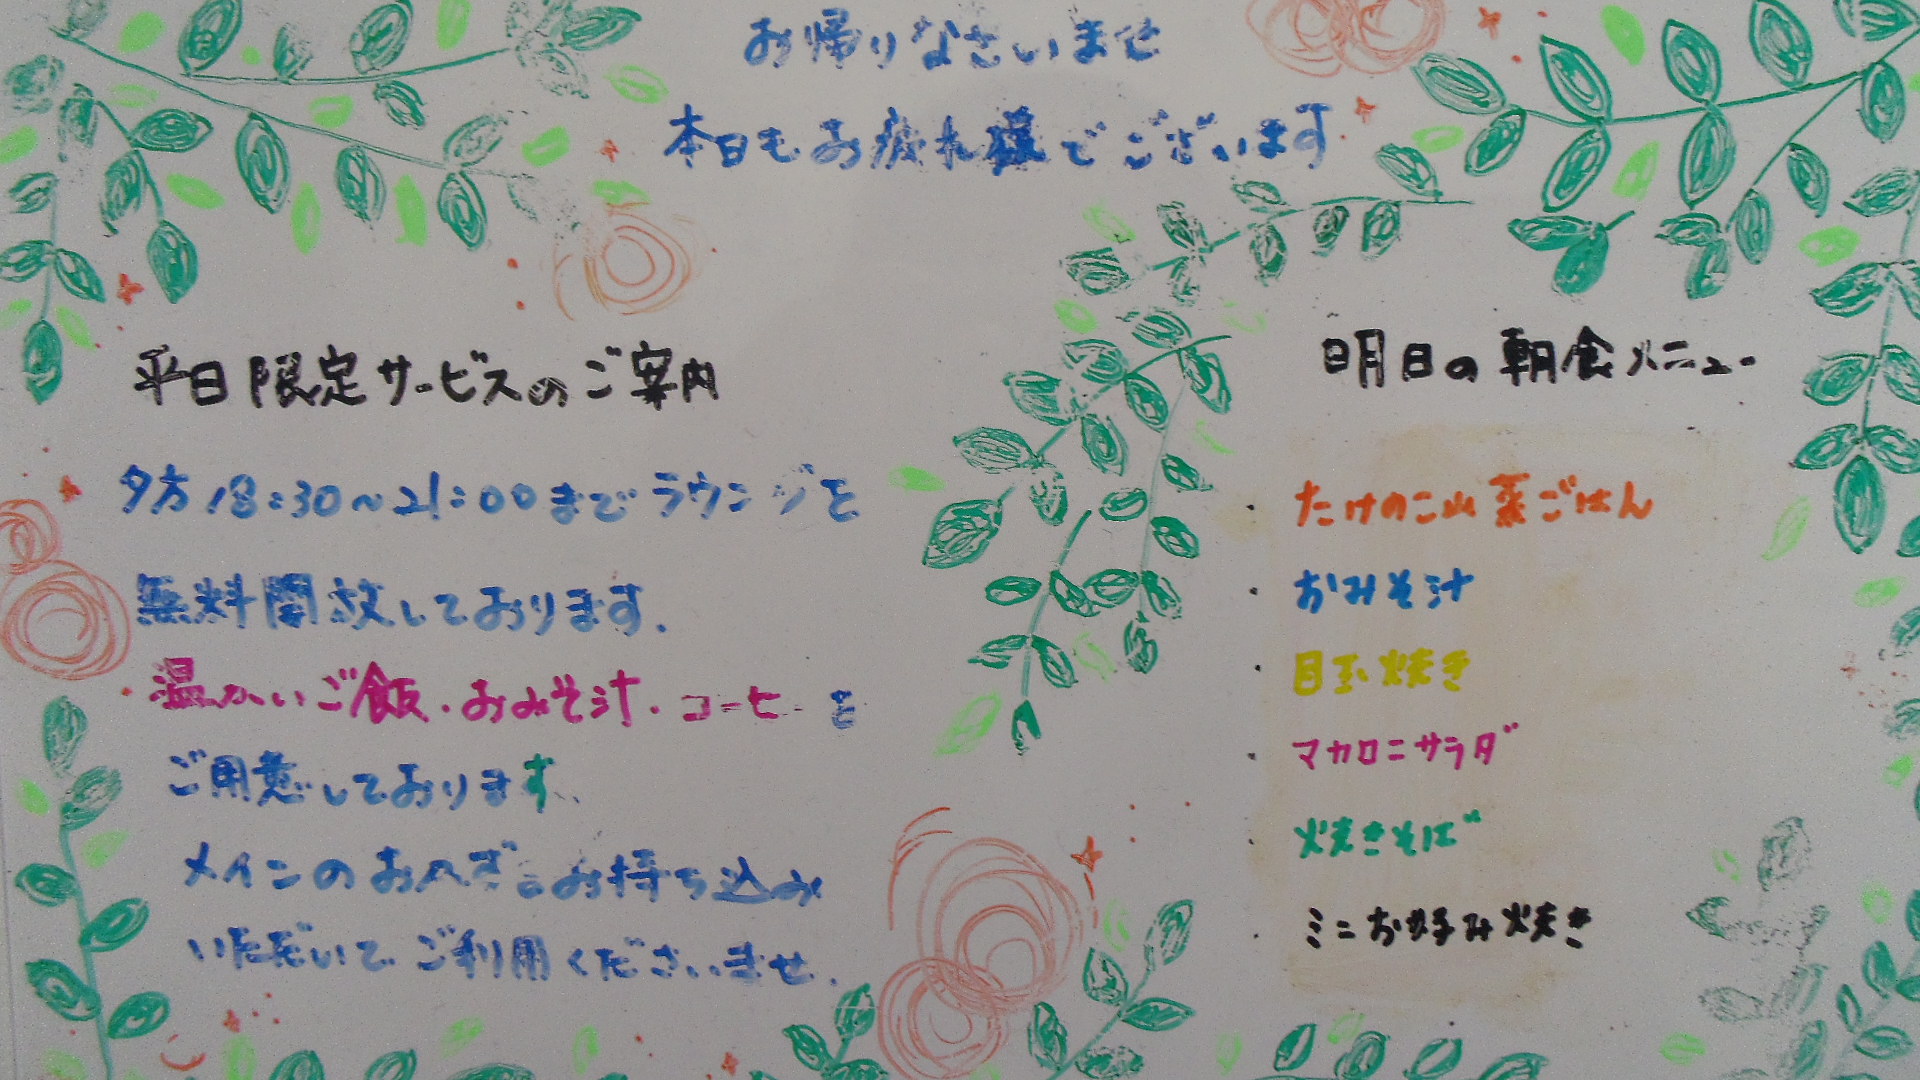 お帰りなさいませ
本日もお疲れ様でございます
平日限定サービスのご案内
夕方18:30～21:00までラウンジを
無料開放しております.
温かいご飯・おみそ汁・コーヒーを
ご用意しております、
メインのおかずをお持ち込み
いただいてご利用くださいませ.
明日の朝食メニュー
・たけのこ山菜ごはん
・おみそ汁
・目玉焼き
・マカロニサラダ
・焼きそば
・ミニお好み焼き